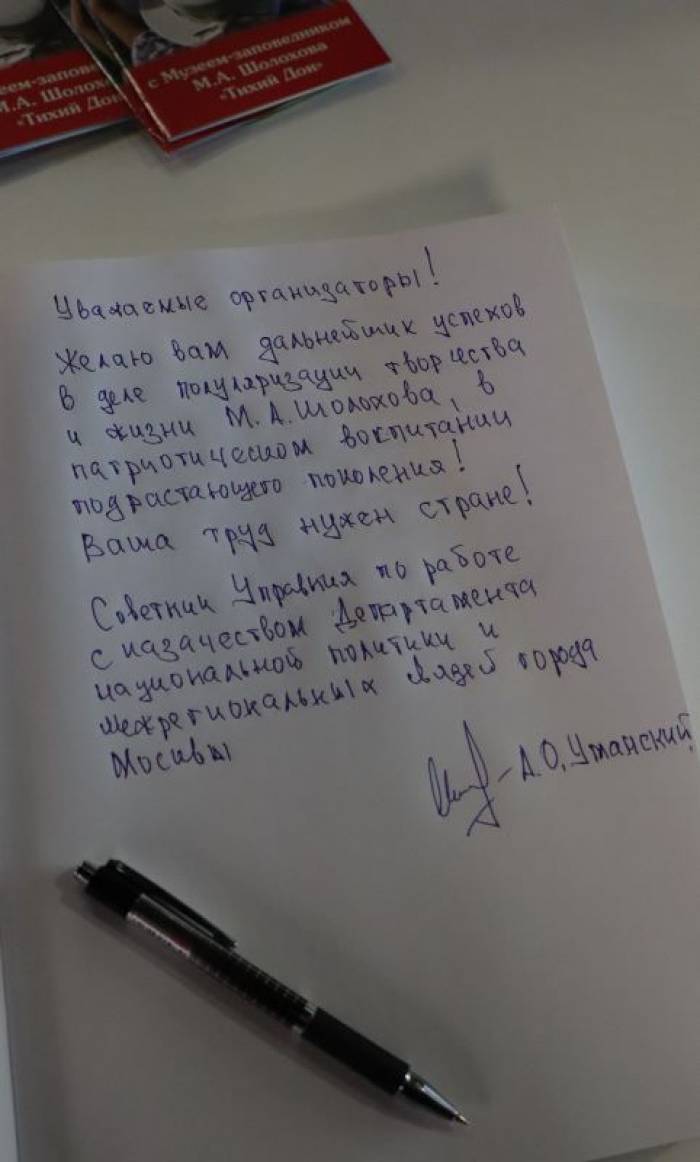 еем-запове
М.А. Шолох
«Тихий Дон
с Музеем-заповедником
М.А. Шолохова
«Тихий Дон»
Уважаемые организаторы!
Желаю вам дальнейших успехов
в деле популяризации творчества
и жизни М.А. Шолохова, в
патриотическом воспитании
подрастающего поколения!
Ваша труд нужен стране!
Советник Управния по работе
с казачеством Департамента
национальной политики и
межрегиональных связей города
Москвы
А.О. Уманский